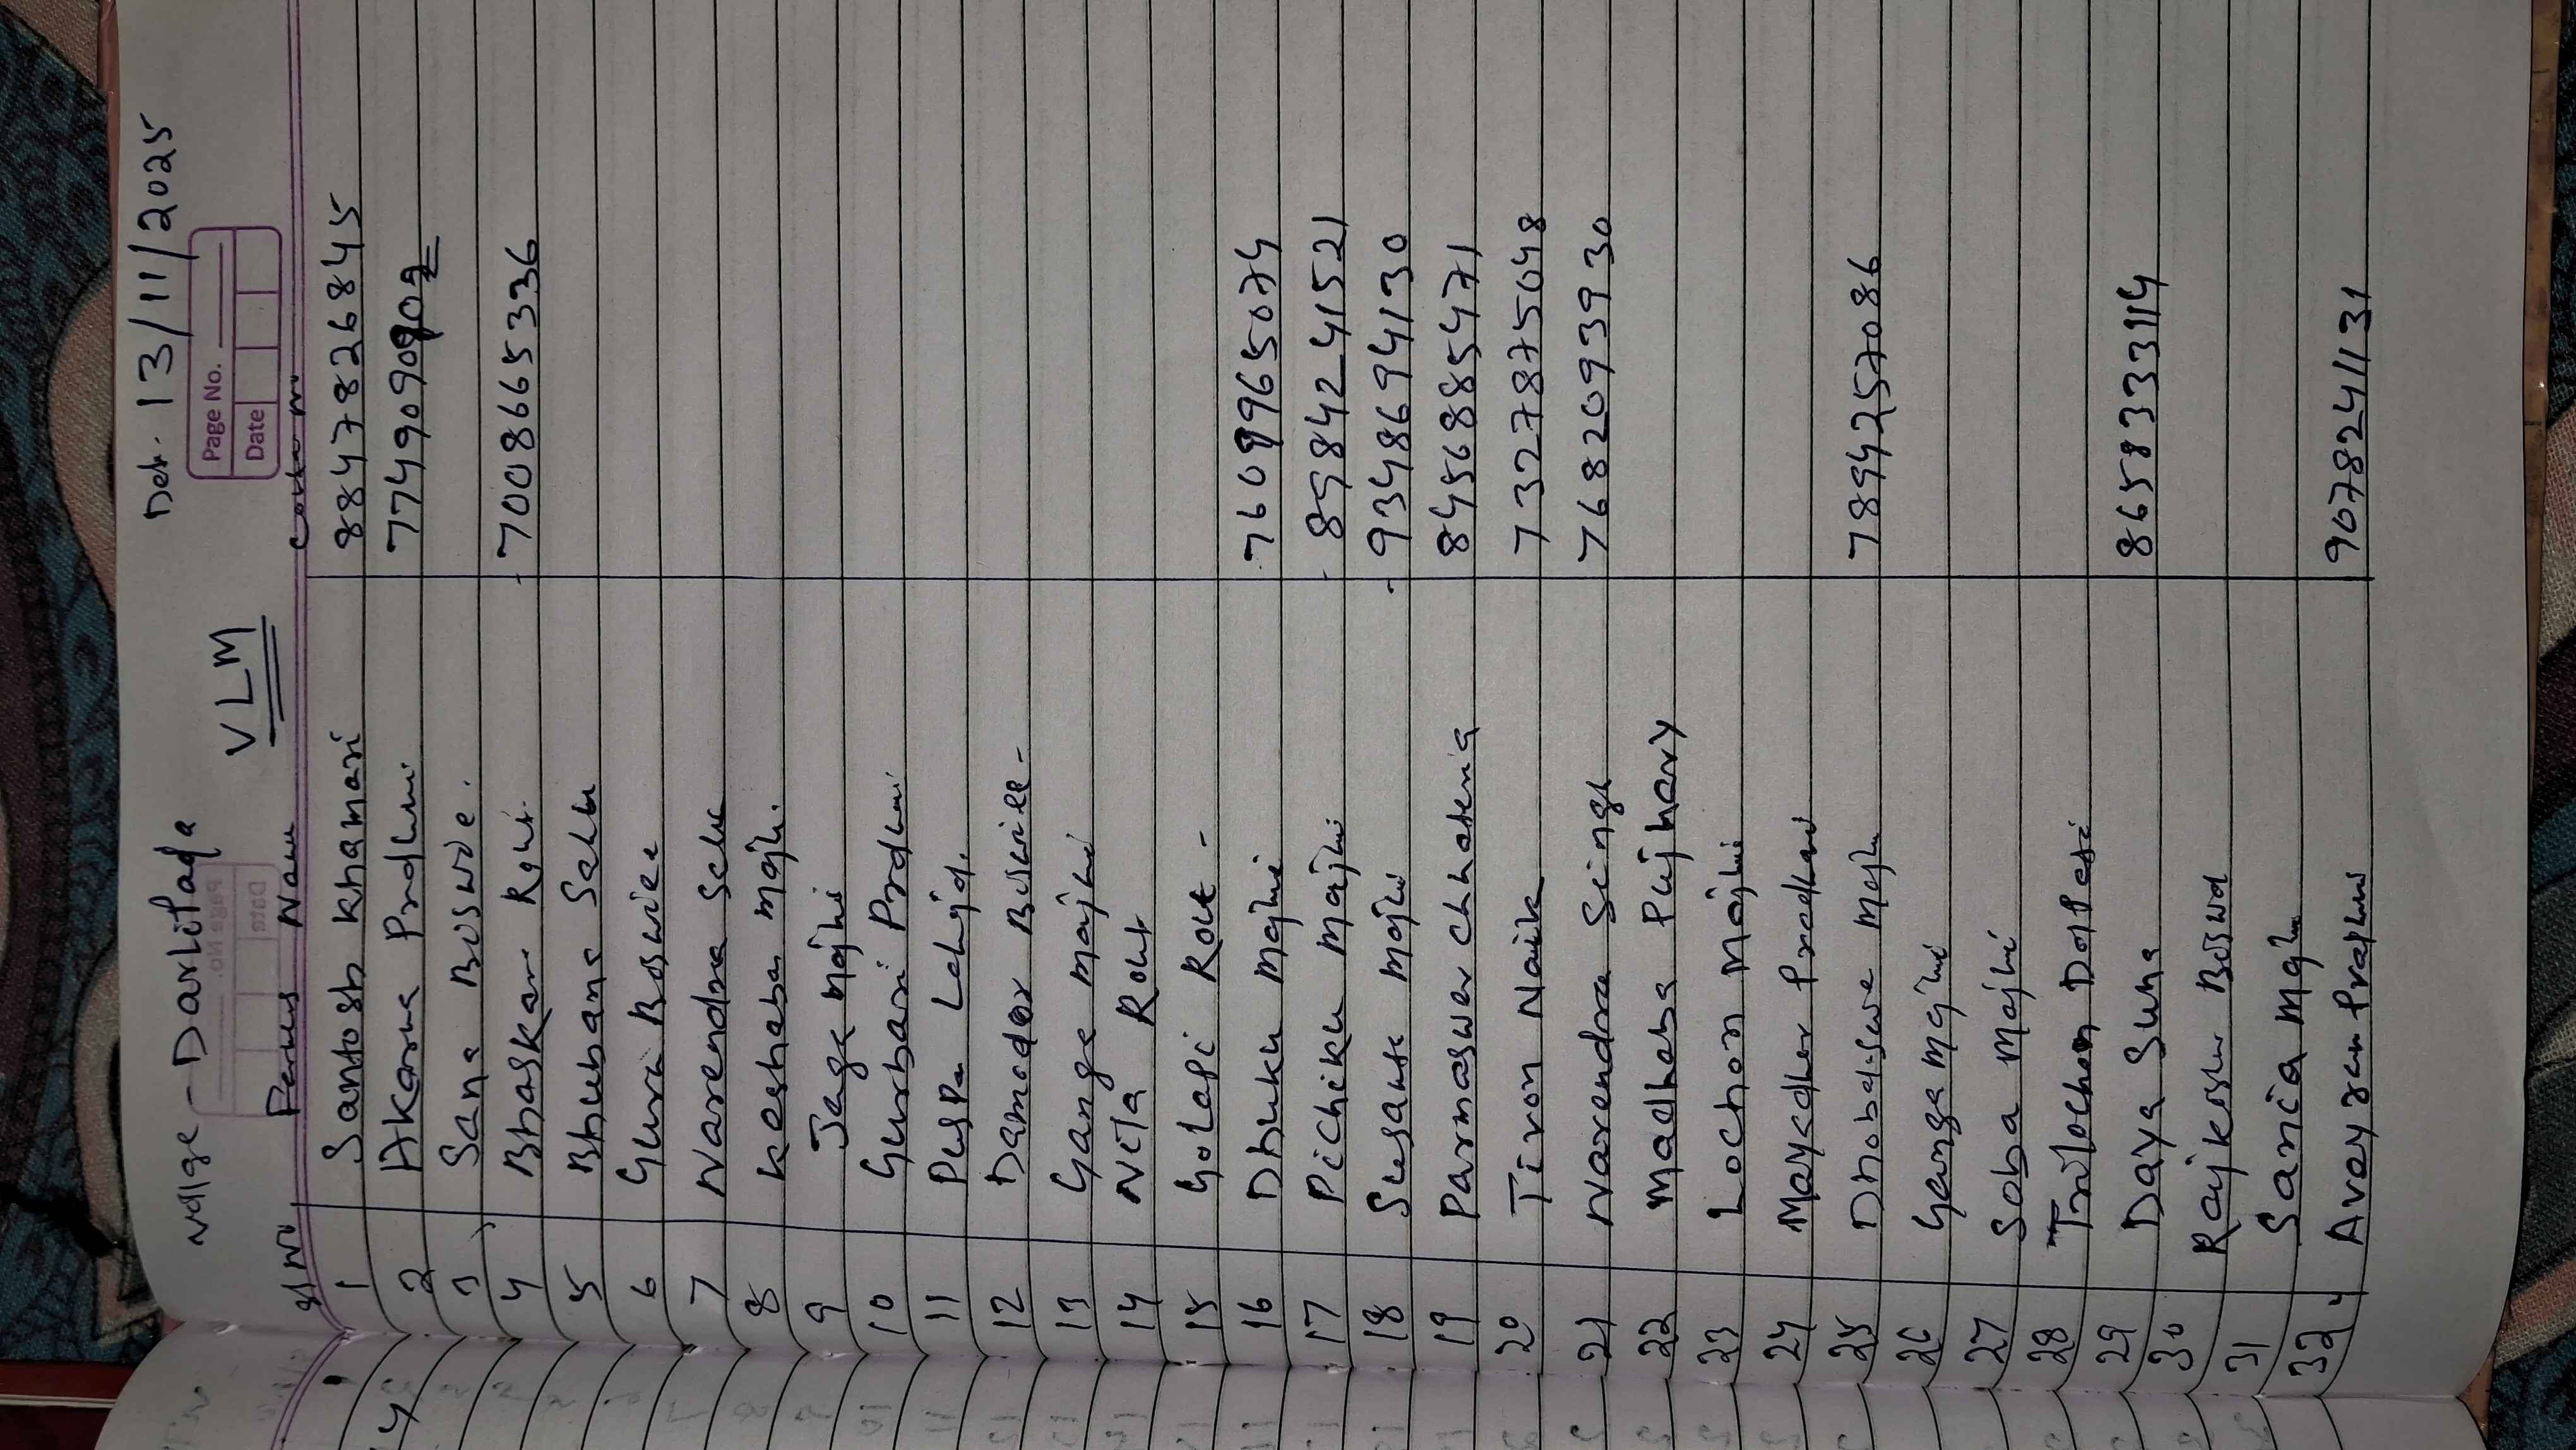 Vallge - Darlipada Dat. 13/11/2025
VLM
Page No.
Date
Sl No Perus Name Contact
1 Santosh khamari 8847826845
2 Akarna Prodhni
3 Sana Boswe.
4 Bhaskar 7008665336
5 Bhubana Sahu
6 Guru
7 Narendra Sahu
8 keshaba majhi.
9 Jaga Majhi
10 Gurbari Prodhni
11 Puspa
12 Damodar
13 Ganga majhi
14 Nita Rout
15 Golapi Rout -
16 Dhuku Majhi 7609965074
17 Pichiku Majhi 8984241521
18 Susanta Majhi 9348694130
19 Parmaswer chhateria 8456885471
20 Tiron Naik 7327875048
21 Narendra Singh 7682093930
22 Madhaba Pujhary
23 Lochon Majhi
24 Pradhan
25 Majhi 7894257086
26 Ganga Majhi
27 Soba Majhi
28 Trilochan
29 Daya Suna 8658333114
30
31 Sania Majhi
32 9078241131